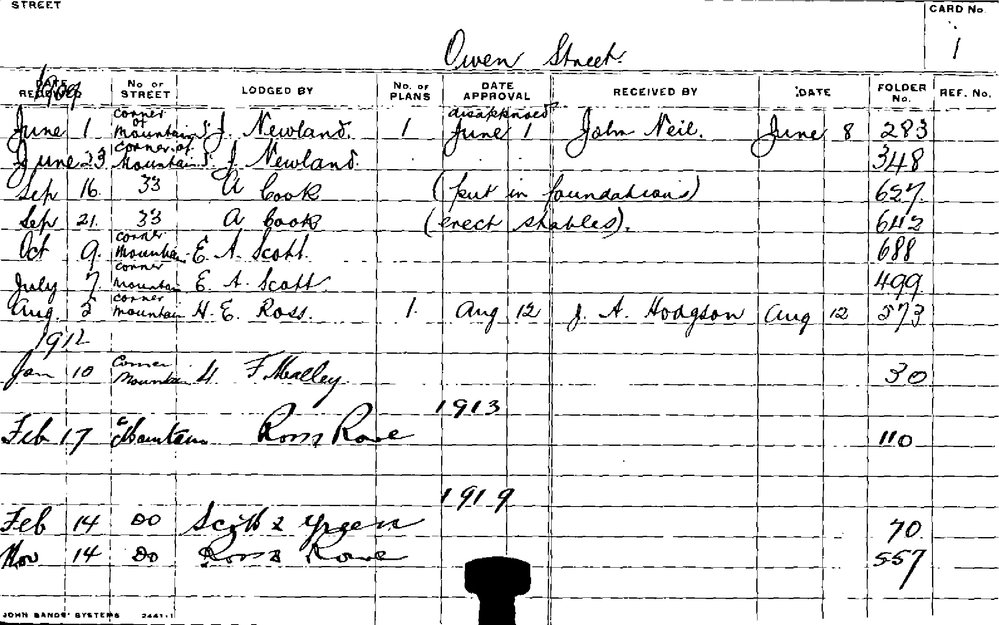 STREET
CARD No.
1
Owen Street.
1909
DATE RECEIVED No OF STREET LODGED BY No. OF PLANS DATE APPROVAL RECEIVED BY DATE FOLDER No. REF. No.
June 1 corner of Mountain S. J. Newland. 1 disapproved June 1 John Neil. June 8 283
June 23 corner of Mountain S. J Newland 348
Sep 16. 33 A Cook (put in foundations) 627
Sep 21. 33 A Cook (erect stables). 642
Oct 9. corner Mountain E. A. Scott. 688
July 7. corner Mountain E. A. Scott 499
Aug. 5 corner Mountain H. E. Ross. 1. Aug 12 J. A. Hodgson Aug 12 573
1912
Jan 10 Corner Mountain 30
1913
Feb 17 Mountain Ross Rowe 110
1919
Feb 14 DO Scott & Green 70
Nov 14 DO Ross & Rowe 557
JOHN SANDS' SYSTEMS 2441-1